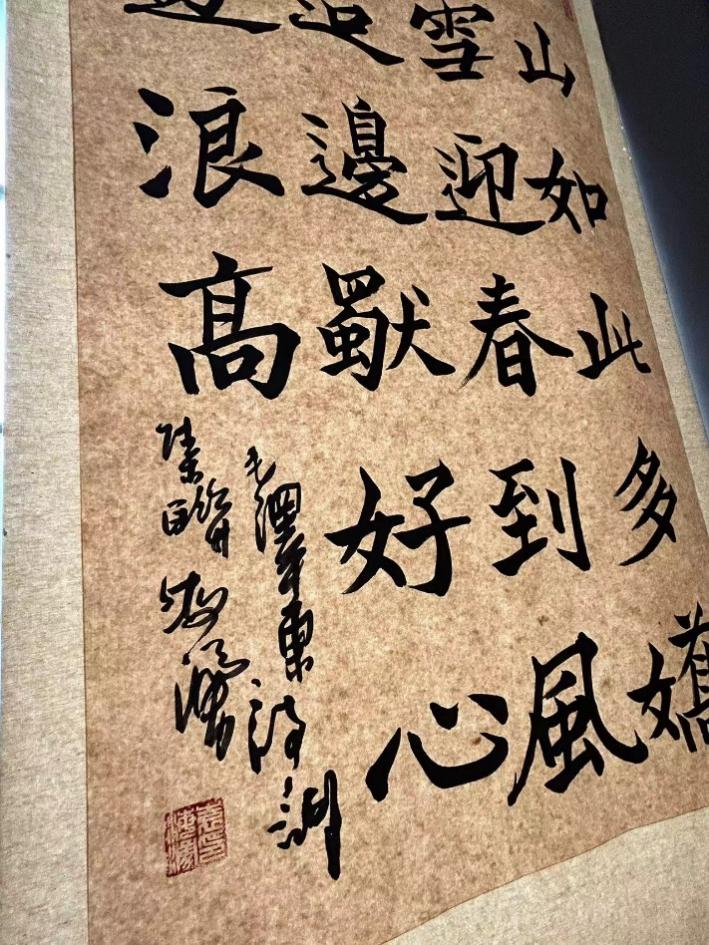 山如此多嬌
雪迎春到風
邊獨好心
浪高
毛澤東詩詞